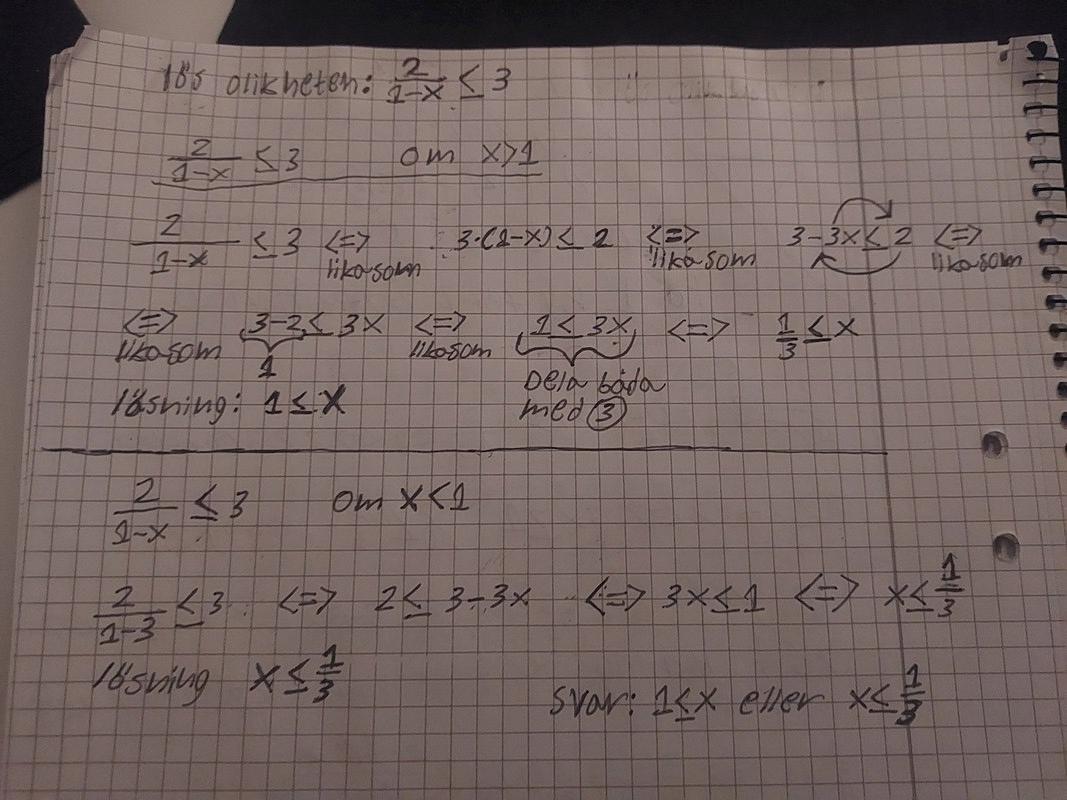 lös olikheten: 2/(1-x) ≤ 3
2/(1-x) ≤ 3 om x>1
2/(1-x) ≤ 3 <=> likasom 3·(1-x) ≤ 2 <=> likasom 3-3x ≤ 2 <=> likasom
<=> likasom 3-2 ≤ 3x <=> likasom 1 ≤ 3x <=> 1/3 ≤ x
1
Dela båda
lösning: 1 ≤ x med 3
2/(1-x) ≤ 3 om x<1
2/(1-3) ≤ 3 <=> 2 ≤ 3-3x <=> 3x ≤ 1 <=> x ≤ 1/3
lösning x ≤ 1/3
svar: 1 ≤ x eller x ≤ 1/3